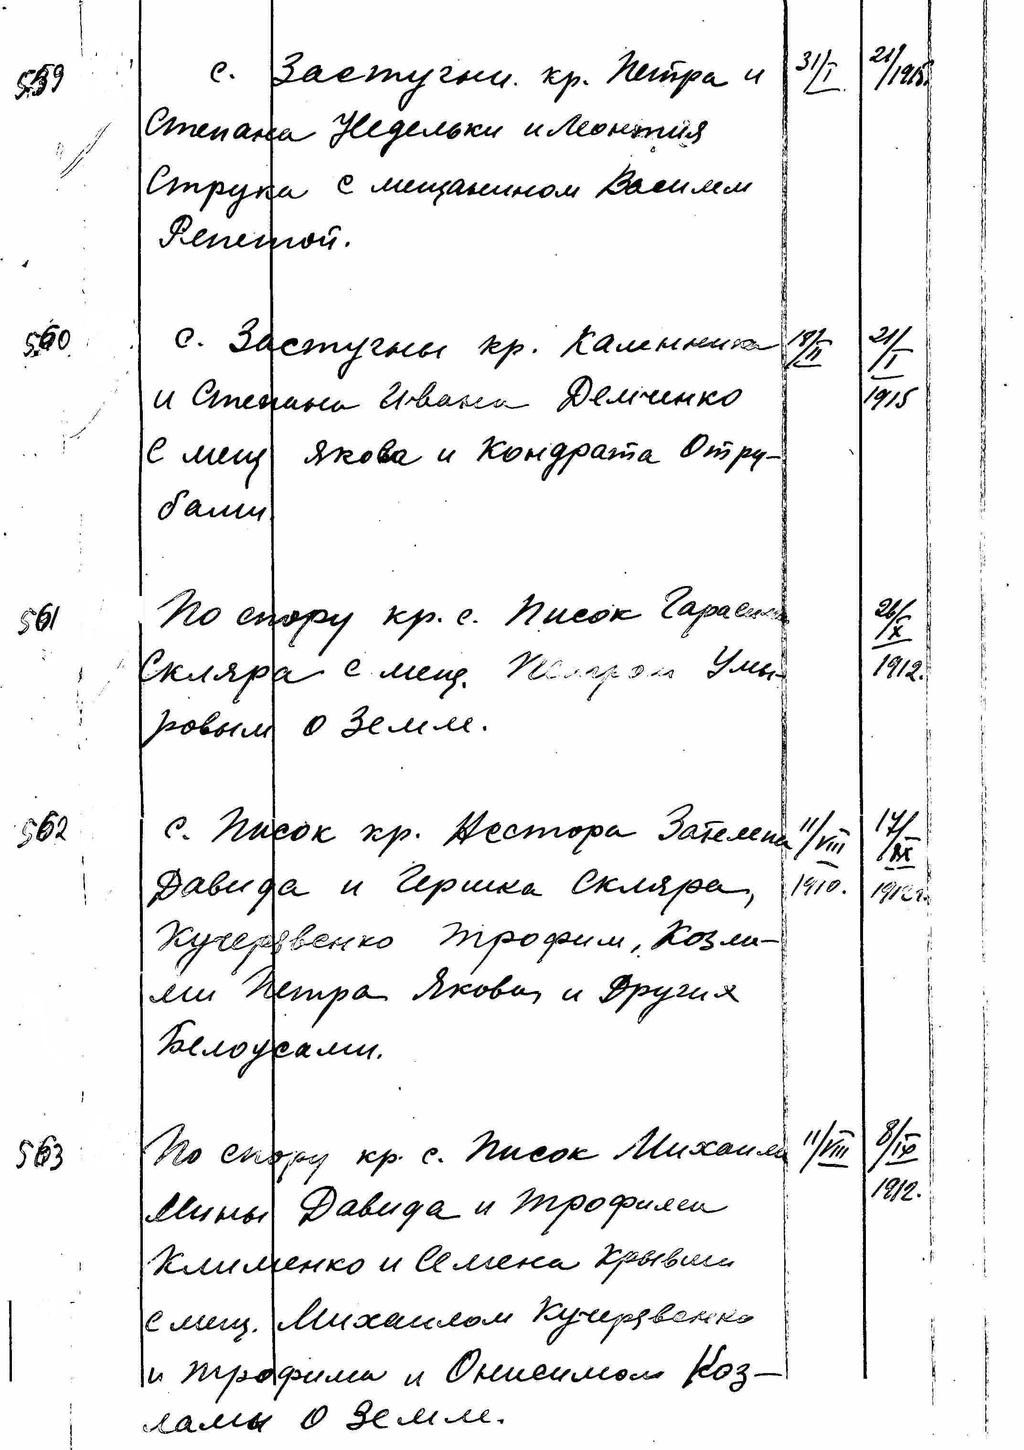 559 с. Застугни. кр. Петра и 31/I 21/1915.
Степана Недельки и Леонтия
Струка с мещанином Василем
Репетой.
560 с. Застугны кр. Каленика 18/II 21/I 1915
и Степана Ивана Демченко
с мещ Якова и Кондрата Отру-
бами
561 По спору кр. с. Писок Гарасима 26/X 1912.
Скляра с мещ. Петром Умы-
ровым о земле.
562 с. Писок кр. Нестора 11/VIII 1910. 17/IX 1912 г.
Давида и Гершка Скляра,
Кучерявенко Трофим, Козли-
ми Петра Якова, и Других
Белоусами.
563 По спору кр. с. Писок Михаила 11/VIII 8/IX 1912.
Мины Давида и Трофима
Клименко и Семена
с мещ. Михаилом Кучерявенко
и Трофима и Онисимом Коз-
ламы о земле.